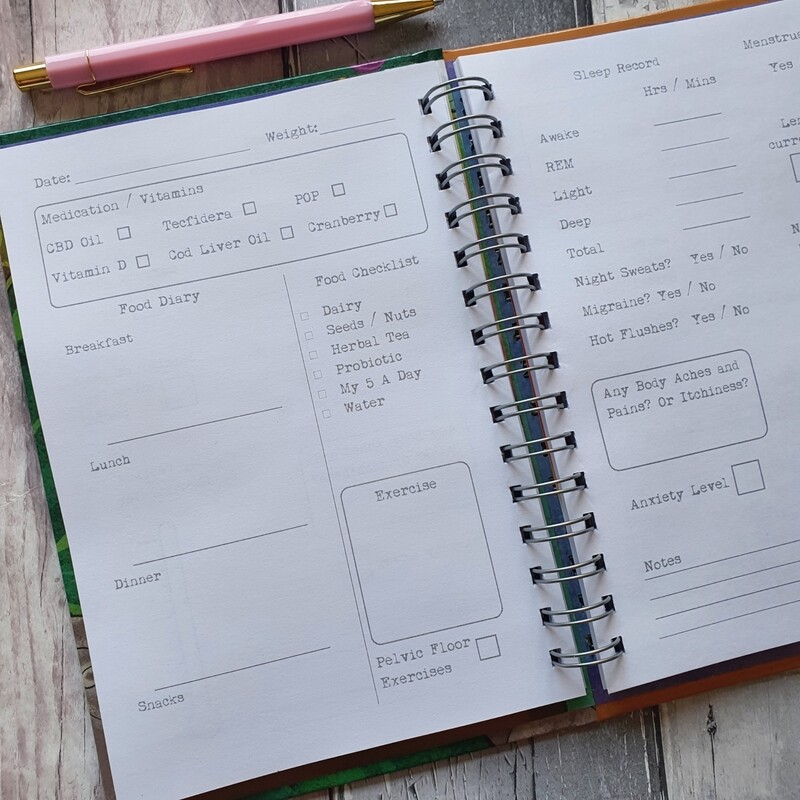 Date: Weight:
Medication / Vitamins
CBD Oil Tecfidera POP
Vitamin D Cod Liver Oil Cranberry
Food Diary
Breakfast
Lunch
Dinner
Snacks
Food Checklist
Dairy
Seeds / Nuts
Herbal Tea
Probiotic
My 5 A Day
Water
Exercise
Pelvic Floor
Exercises
Sleep Record
Hrs / Mins
Awake
REM
Light
Deep
Total
Night Sweats? Yes / No
Migraine? Yes / No
Hot Flushes? Yes / No
Any Body Aches and
Pains? Or Itchiness?
Anxiety Level
Notes
Yes